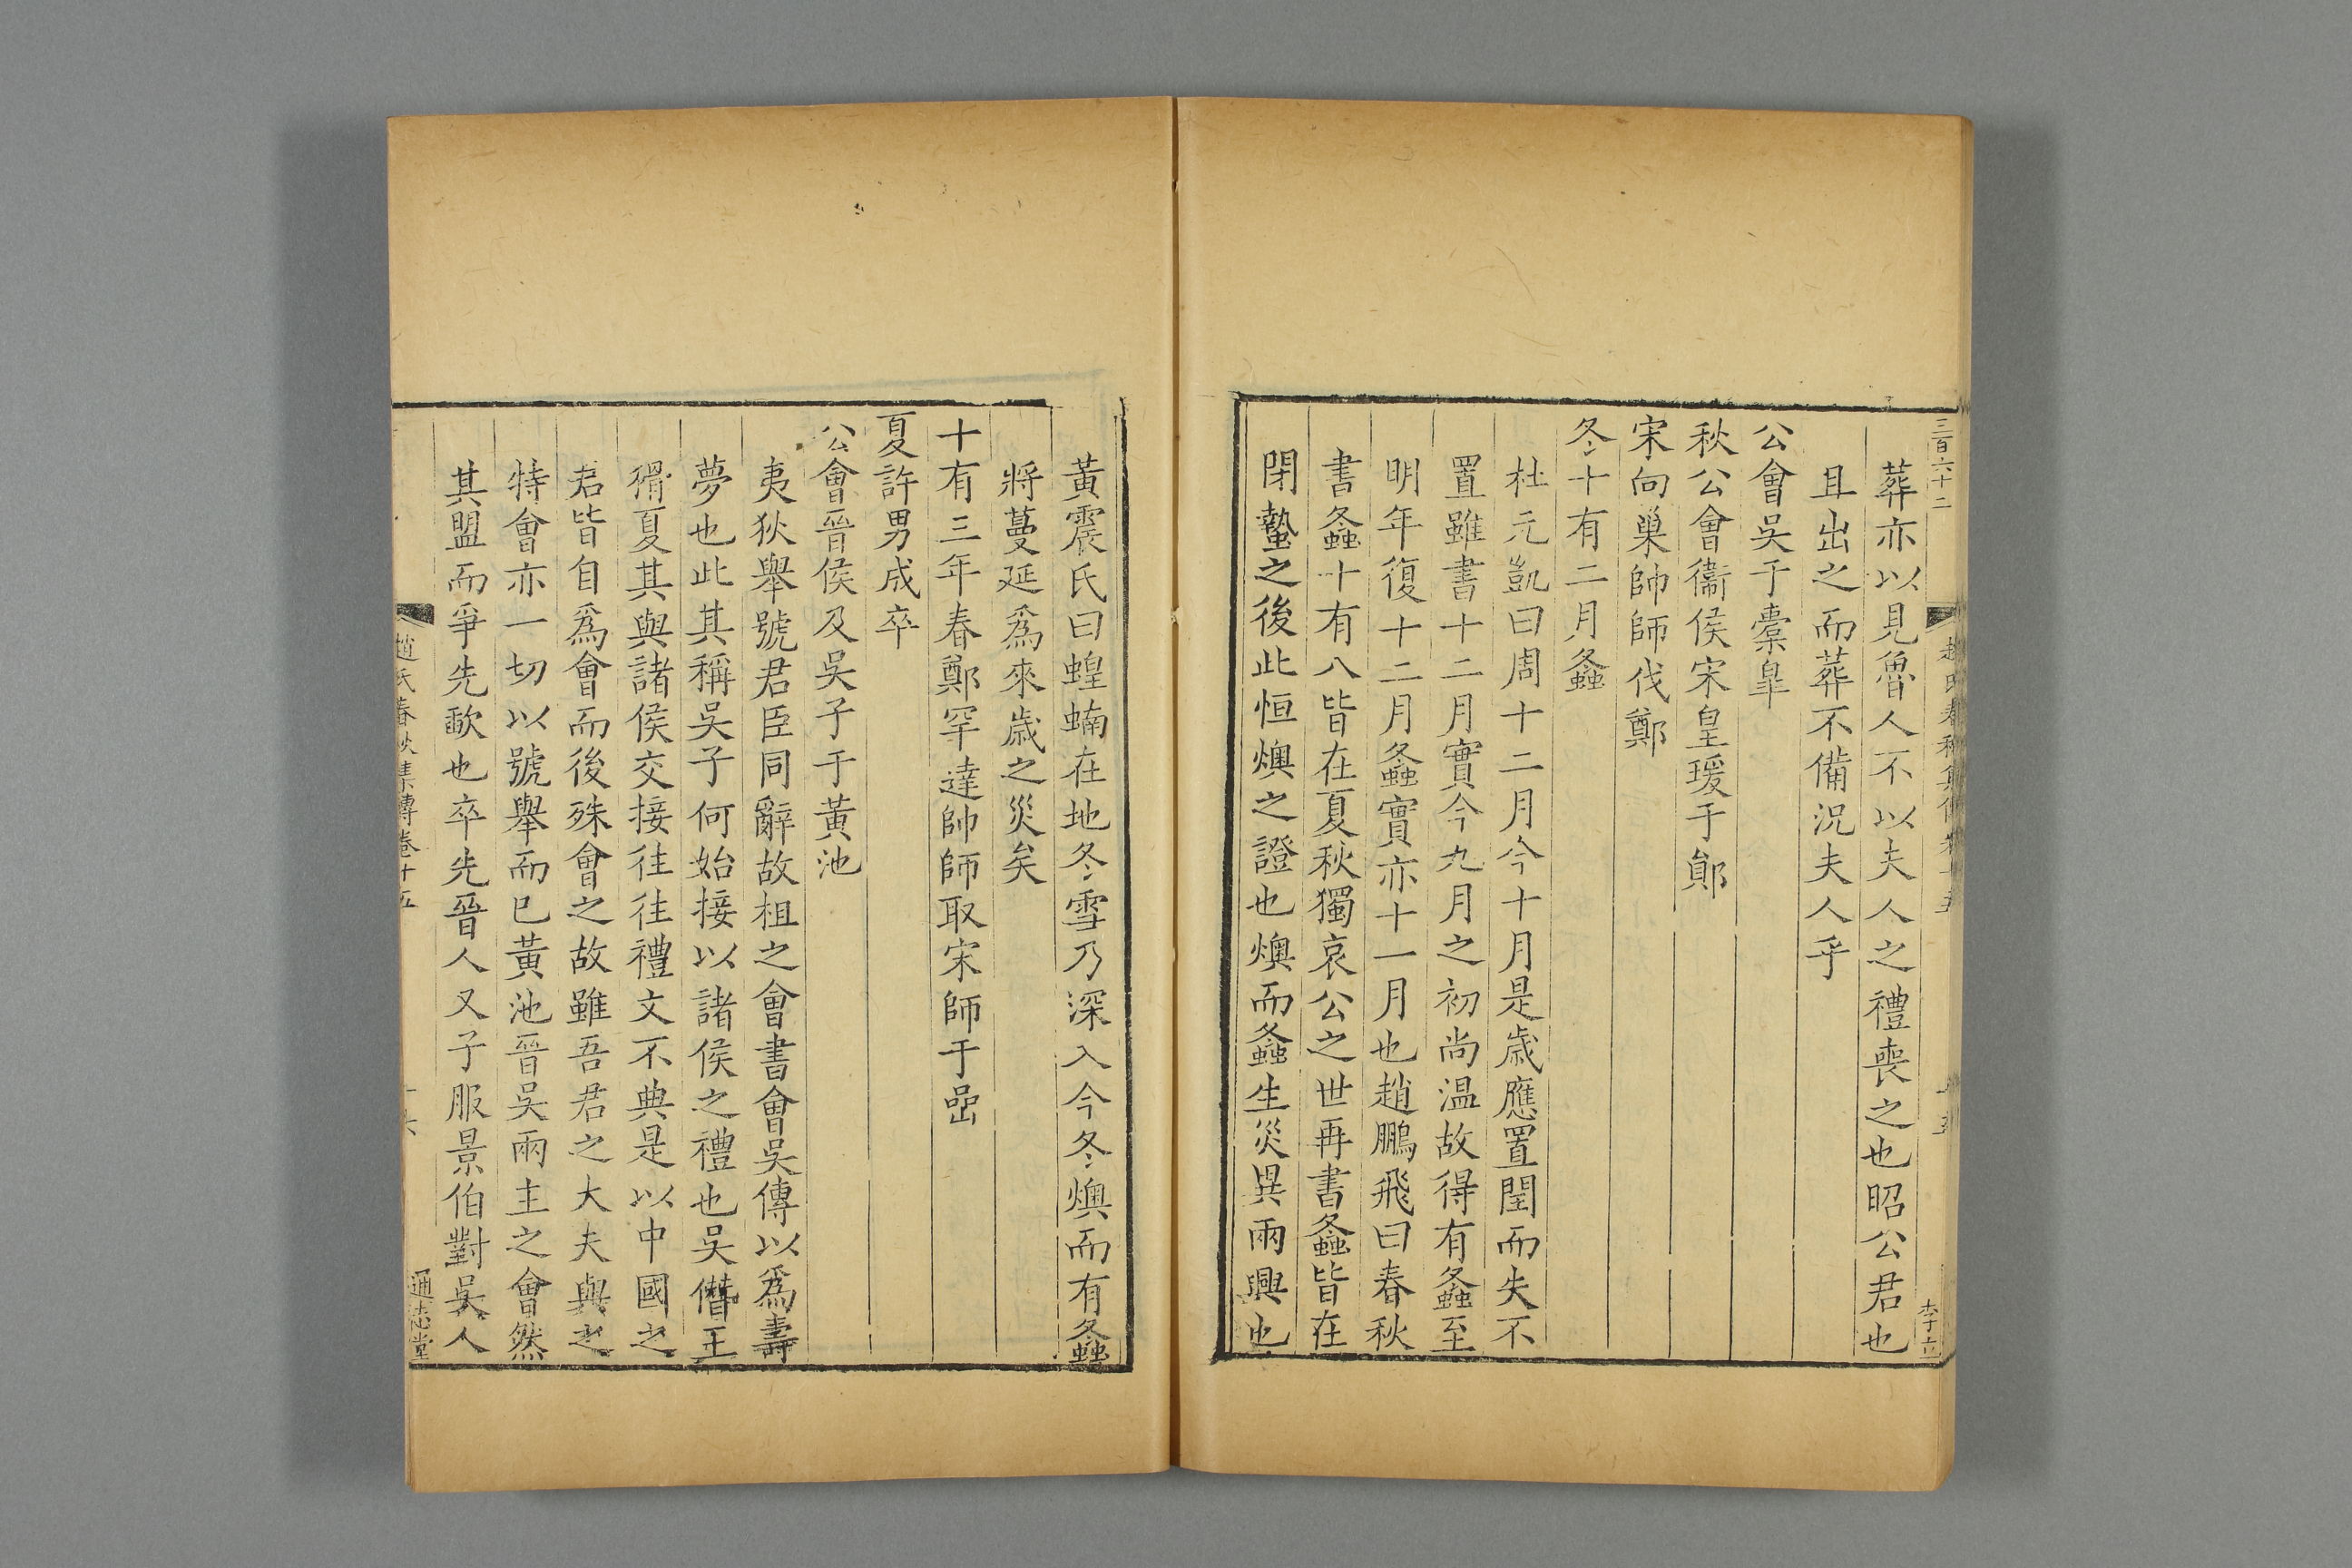 三百六十二
葬亦以見魯人不以夫人之禮喪之也昭公君也
且出之而葬不備況夫人乎
公會吳于橐皐
秋公會衞侯宋皇瑗于鄖
宋向巢帥師伐鄭
冬十有二月螽
杜元凱曰周十二月今十月是歳應置閏而失不
置雖書十二月實今九月之初尚温故得有螽至
明年復十二月螽實亦十一月也趙鵬飛曰春秋
書螽十有八皆在夏秋獨哀公之世再書螽皆在
閉蟄之後此恒燠之證也燠而螽生災異兩興也
黃震氏曰蝗蝻在地冬雪乃深入今冬燠而有螽
將蔓延爲來歳之災矣
十有三年春鄭罕達帥師取宋師于嵒
夏許男成卒
公會晉侯及吳子于黃池
夷狄舉號君臣同辭故柤之會書會吳傳以爲壽
夢也此其稱吳子何始接以諸侯之禮也吳僭王
猾夏其與諸侯交接往往禮文不典是以中國之
君皆自爲會而後殊會之故雖吾君之大夫與之
特會亦一切以號舉而已黃池晉吳兩主之會然
其盟而爭先歃也卒先晉人又子服景伯對吳人
趙氏春秋集傳卷十五
通志堂